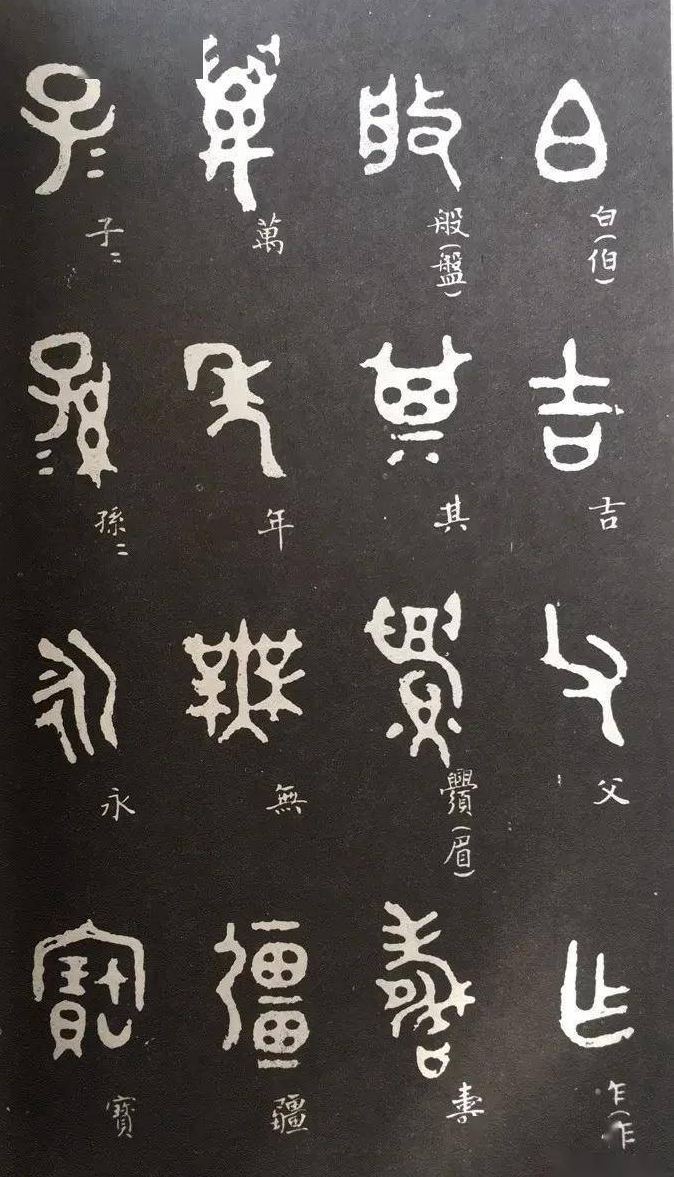 白(伯)吉父乍(作
般(盤)其𩕾(眉)壽
萬年無疆
子＝孫＝永寶